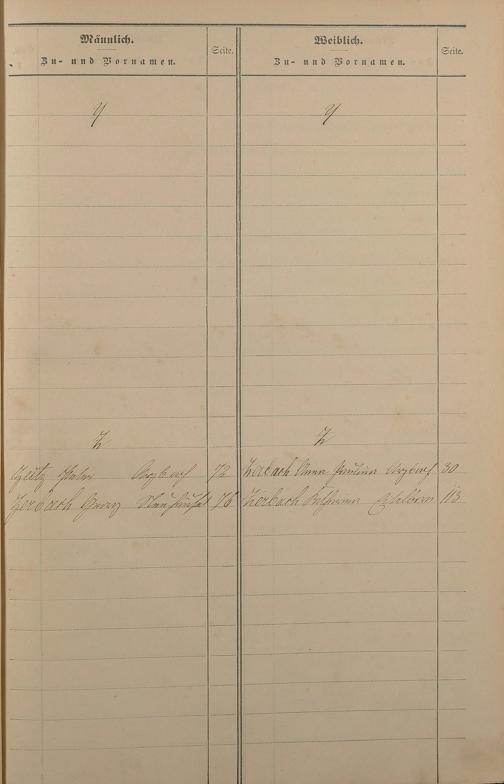 Männlich.
Zu- und Vornamen.
Seite.
Weiblich.
Zu- und Vornamen.
Seite.
Y
Y
Z
Z
Arzbach 72
Zerbach Anna Arzbach 30
Zerbach Georg 76
Zerbach 113